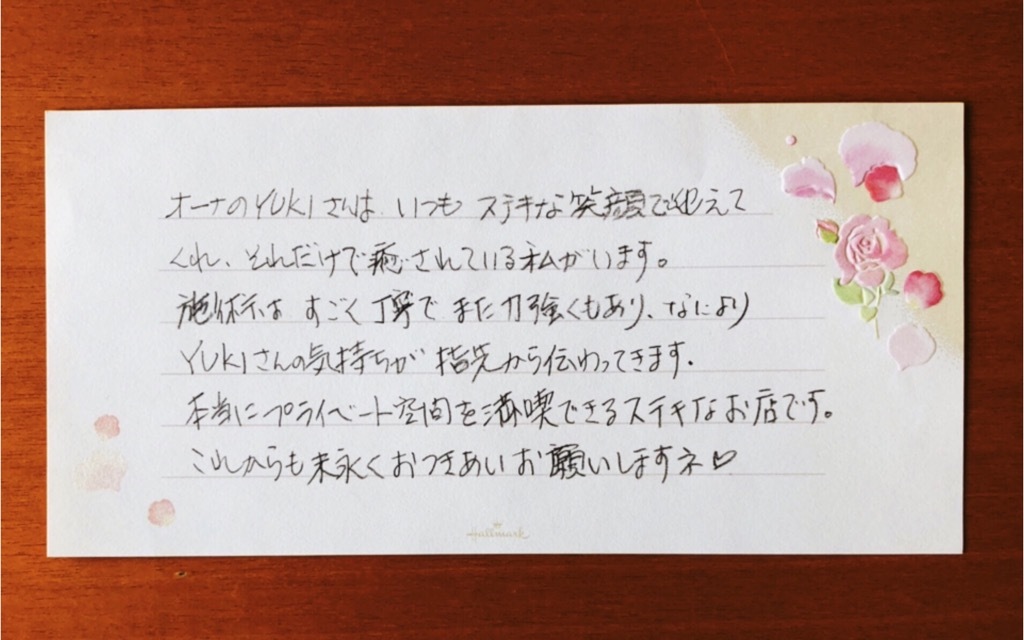 オーナのYUKIさんは、いつも ステキな笑顔で迎えて
くれ、それだけで癒されている私がいます。
施術は すごく丁寧で また力強くもあり、なにより
YUKIさんの気持ちが 指先から伝わってきます.
本当にプライベート空間を満喫できるステキなお店です。
これからも末永くおつきあいお願いしますネ♡
Hallmark